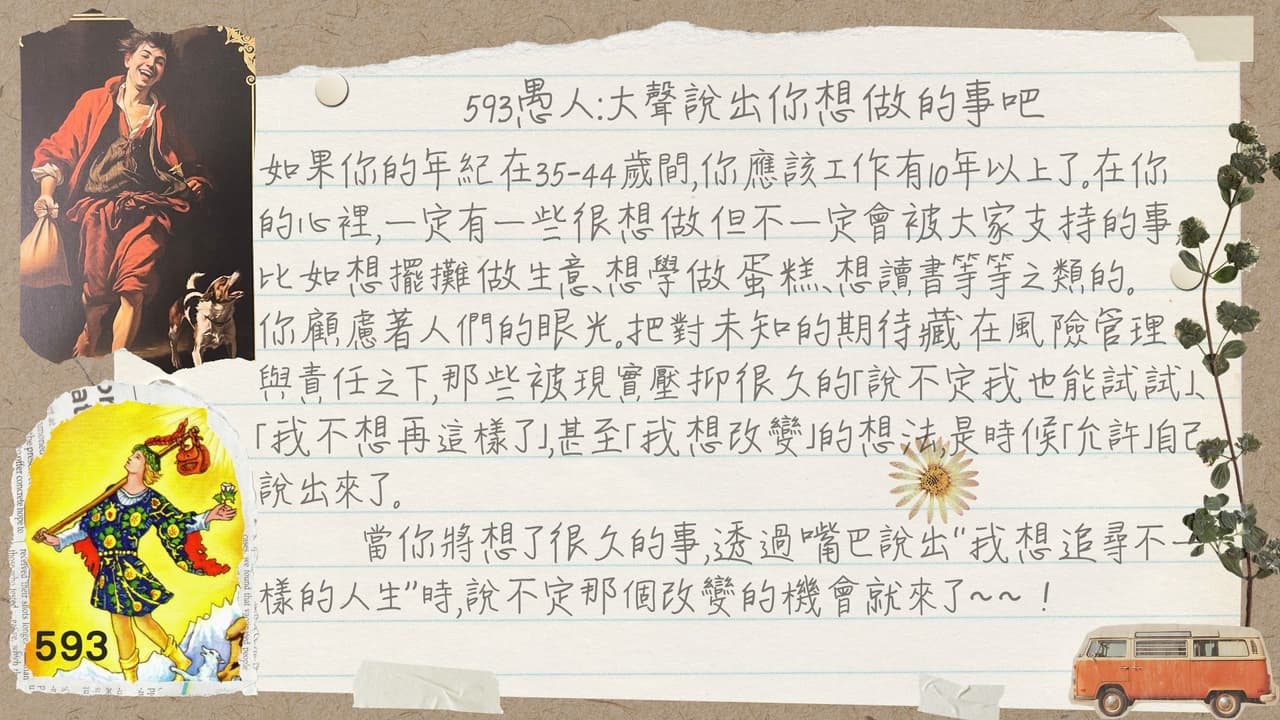 593愚人:大聲說出你想做的事吧
如果你的年紀在35-44歲間,你應該工作有10年以上了。在你
的心裡,一定有一些很想做但不一定會被大家支持的事,
比如想擺攤做生意、想學做蛋糕、想讀書等等之類的。
你顧慮著人們的眼光。把對未知的期待藏在風險管理
與責任之下,那些被現實壓抑很久的「說不定我也能試試」、
「我不想再這樣了」,甚至「我想改變」的想法,是時候「允許」自己
說出來了。
當你將想了很久的事,透過嘴巴說出“我想追尋不一
樣的人生”時,說不定那個改變的機會就來了~~！
593